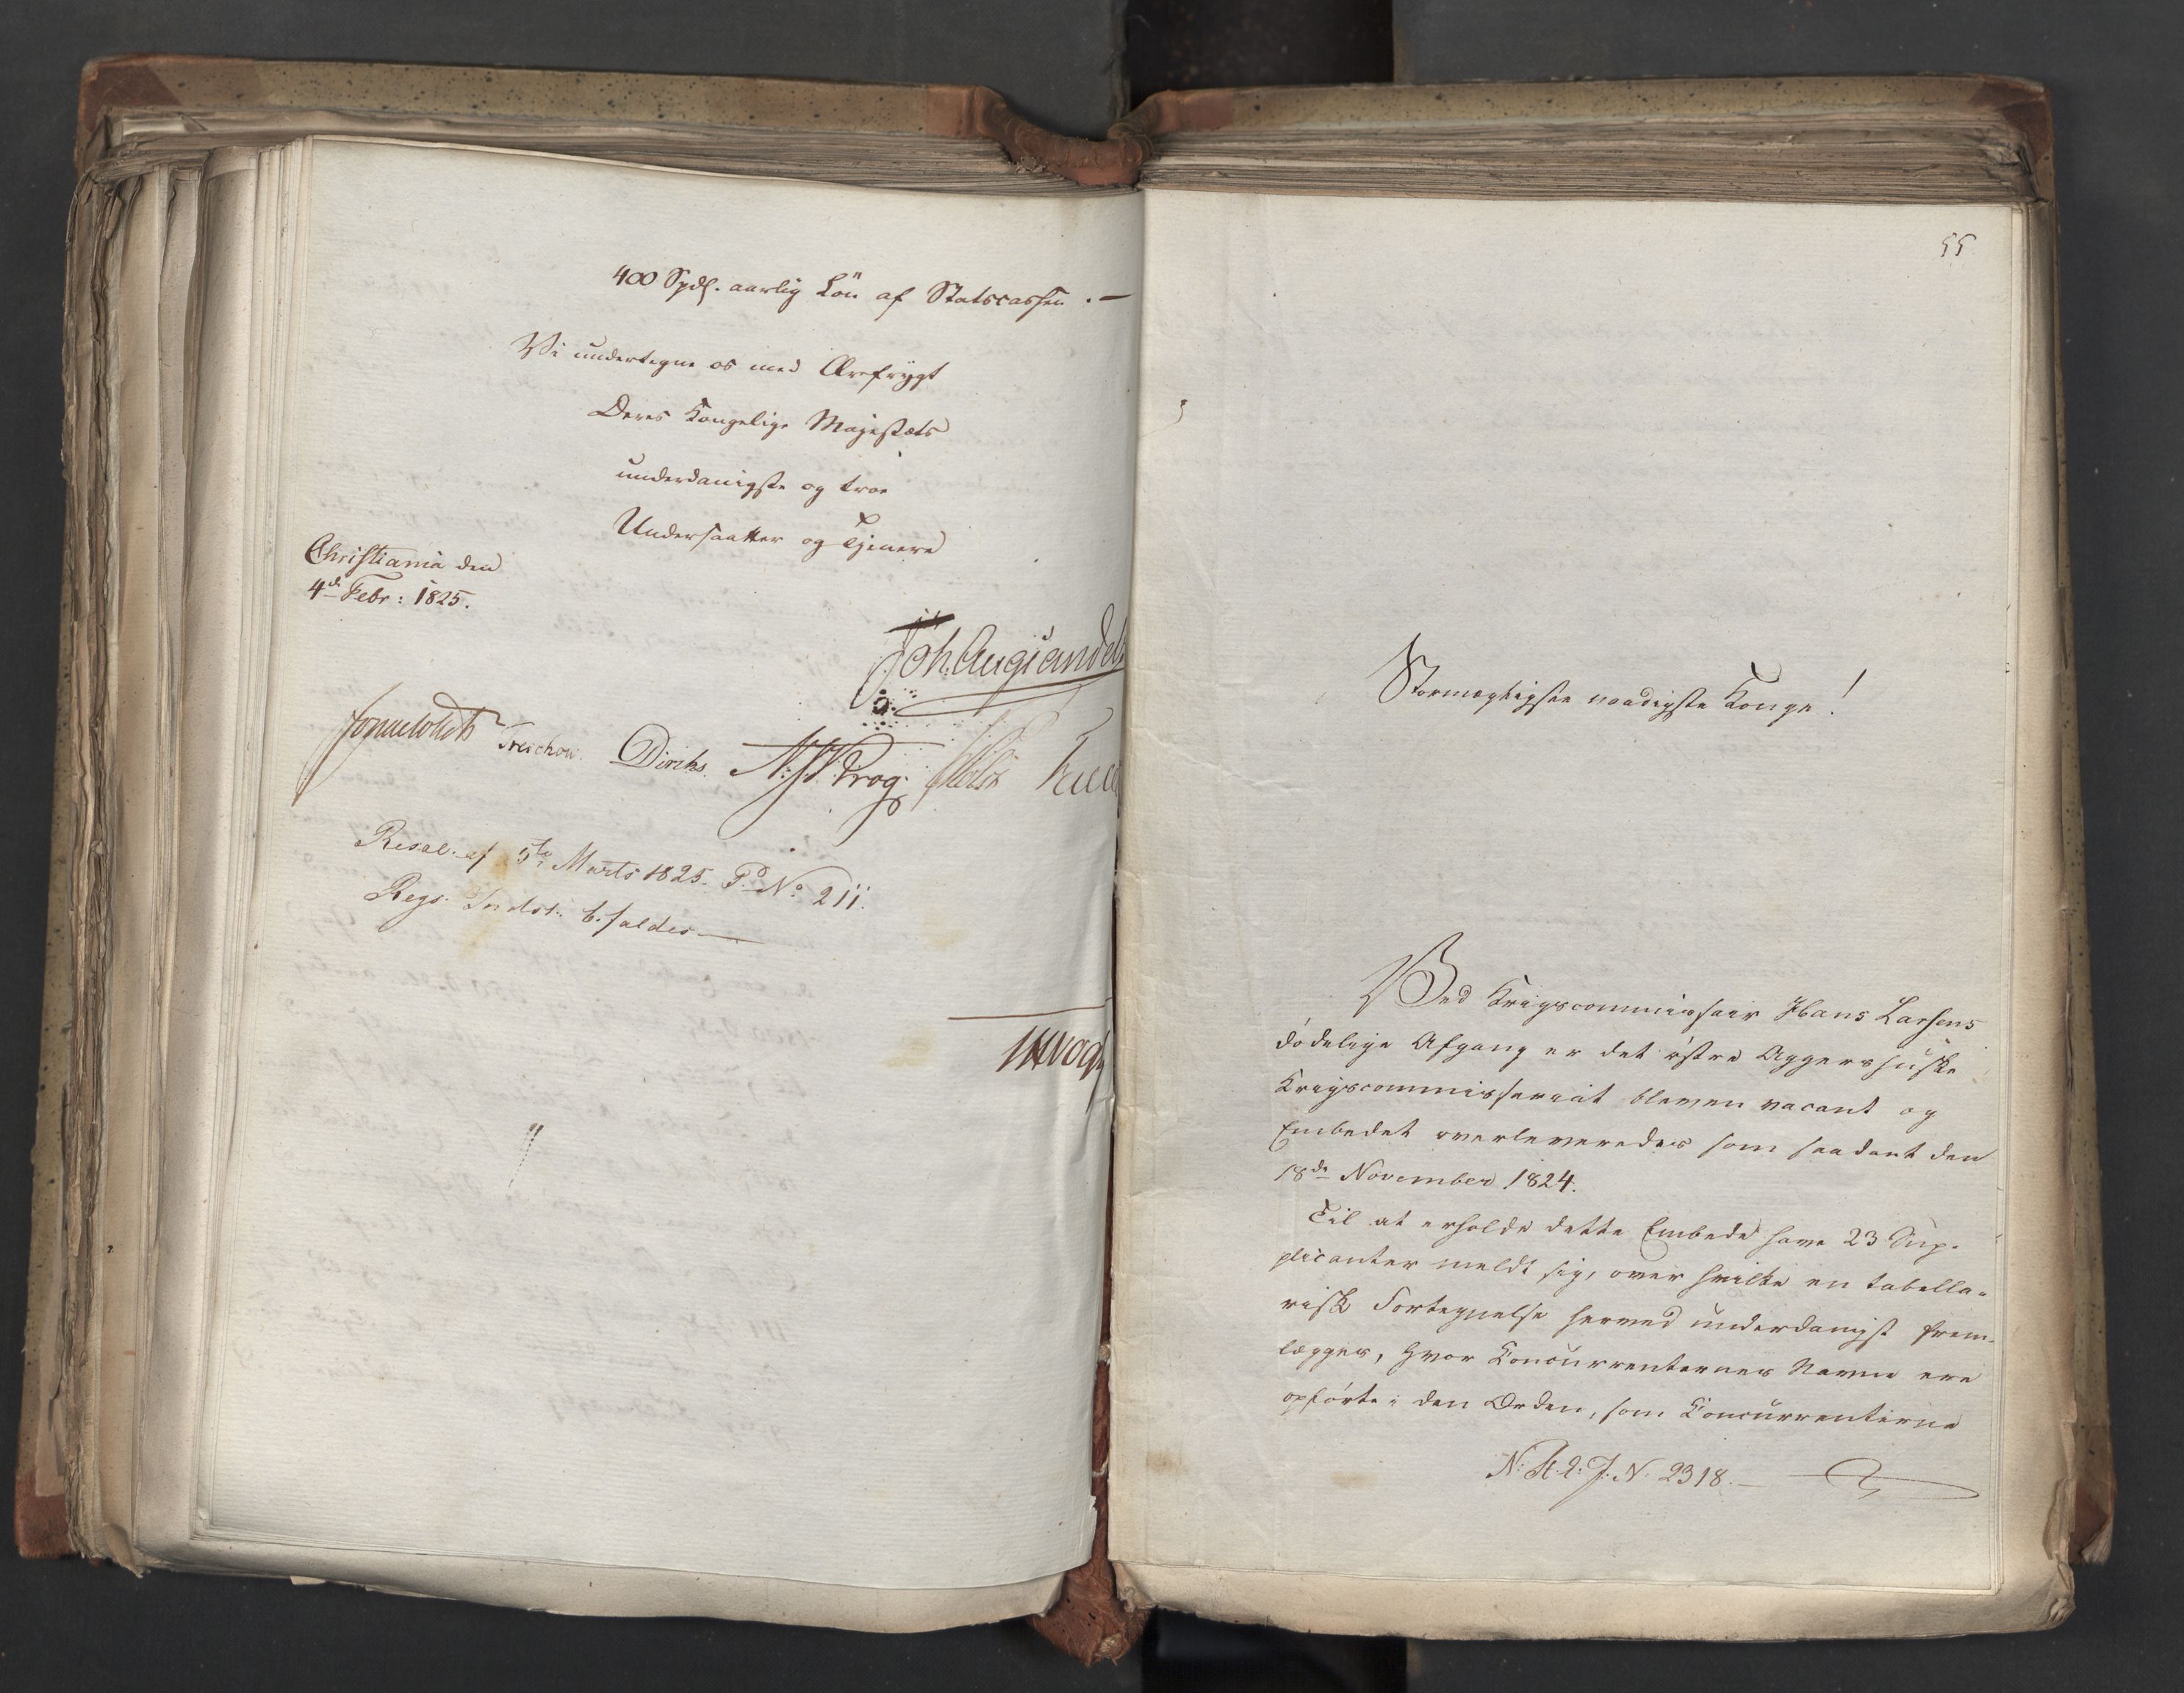 400 Spdl. aarlig Løn af Statscassen. —
Vi undertegne os med Ærefrygt
Deres Kongelige Majestæts
underdanigste og troe
Undersaatter og Tjenere
Christiania den
4de Febr: 1825.
Joh. Aug: Sandels
Treschow. Diriks. N: J. Krog.
Resol. af 5te Marts 1825. Pd No. 211.
Regs. Indst. bifaldes —
55
Stormægtigste naadigste Konge!
Ved Krigscommissair Hans Larsens
dødelige Afgang er det østre Aggershuiske
Krigscommissariat bleven vacant og
Embedet overleveredes som saadant den
18de November 1824.
Til at erholde dette Embede have 23 Sup-
plicanter meldt sig, over hvilke en tabella-
risk Fortegnelse herved underdanigst frem-
lægges, hvor Concurrenternes Navne ere
opførte i den Orden, som Concurrenterne
J. N. 2318. —